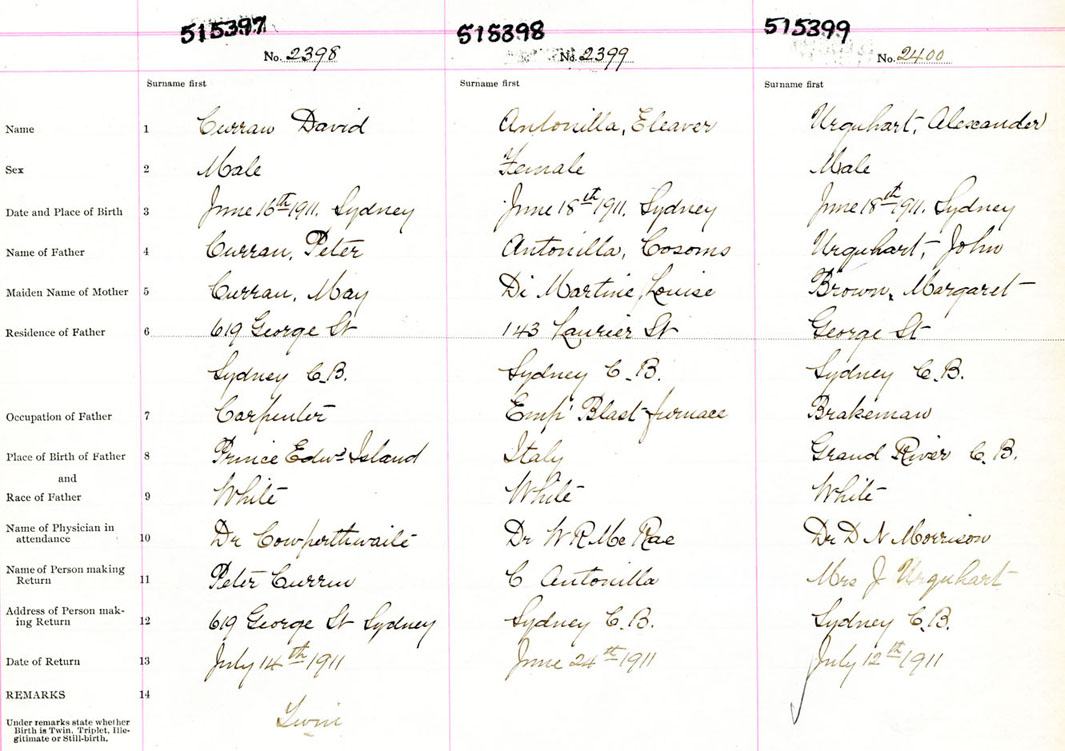 515397 515398 515399
No. 2398 No. 2399 No. 2400
Surname first Surname first Surname first
Name 1 Curran David Antonilla, Eleaver Urquhart, Alexander
Sex 2 Male Female Male
Date and Place of Birth 3 June 16th 1911. Sydney June 18th 1911. Sydney June 18th 1911. Sydney
Name of Father 4 Curran, Peter Antonilla, Cosoms Urquhart, John
Maiden Name of Mother 5 Curran, May Di Martine, Louise Brown, Margaret
Residence of Father 6 619 George St 143 Laurier St George St
Sydney C.B. Sydney C.B. Sydney C.B.
Occupation of Father 7 Carpenter Emp' Blast-furnace Brakeman
Place of Birth of Father 8 Prince Edwd Island Italy Grand River C.B.
and
Race of Father 9 White White White
Name of Physician in
attendance 10 Dr Cowperthwaite Dr W R Mc Rae Dr D N Morrison
Name of Person making
Return 11 Peter Curren C Antonilla Mrs J Urquhart
Address of Person mak-
ing Return 12 619 George St Sydney Sydney C.B. Sydney C.B.
Date of Return 13 July 14th 1911 June 24th 1911 July 12th 1911
REMARKS 14
Twin
Under remarks state whether
Birth is Twin, Triplet, Ille-
gitimate or Still-birth.